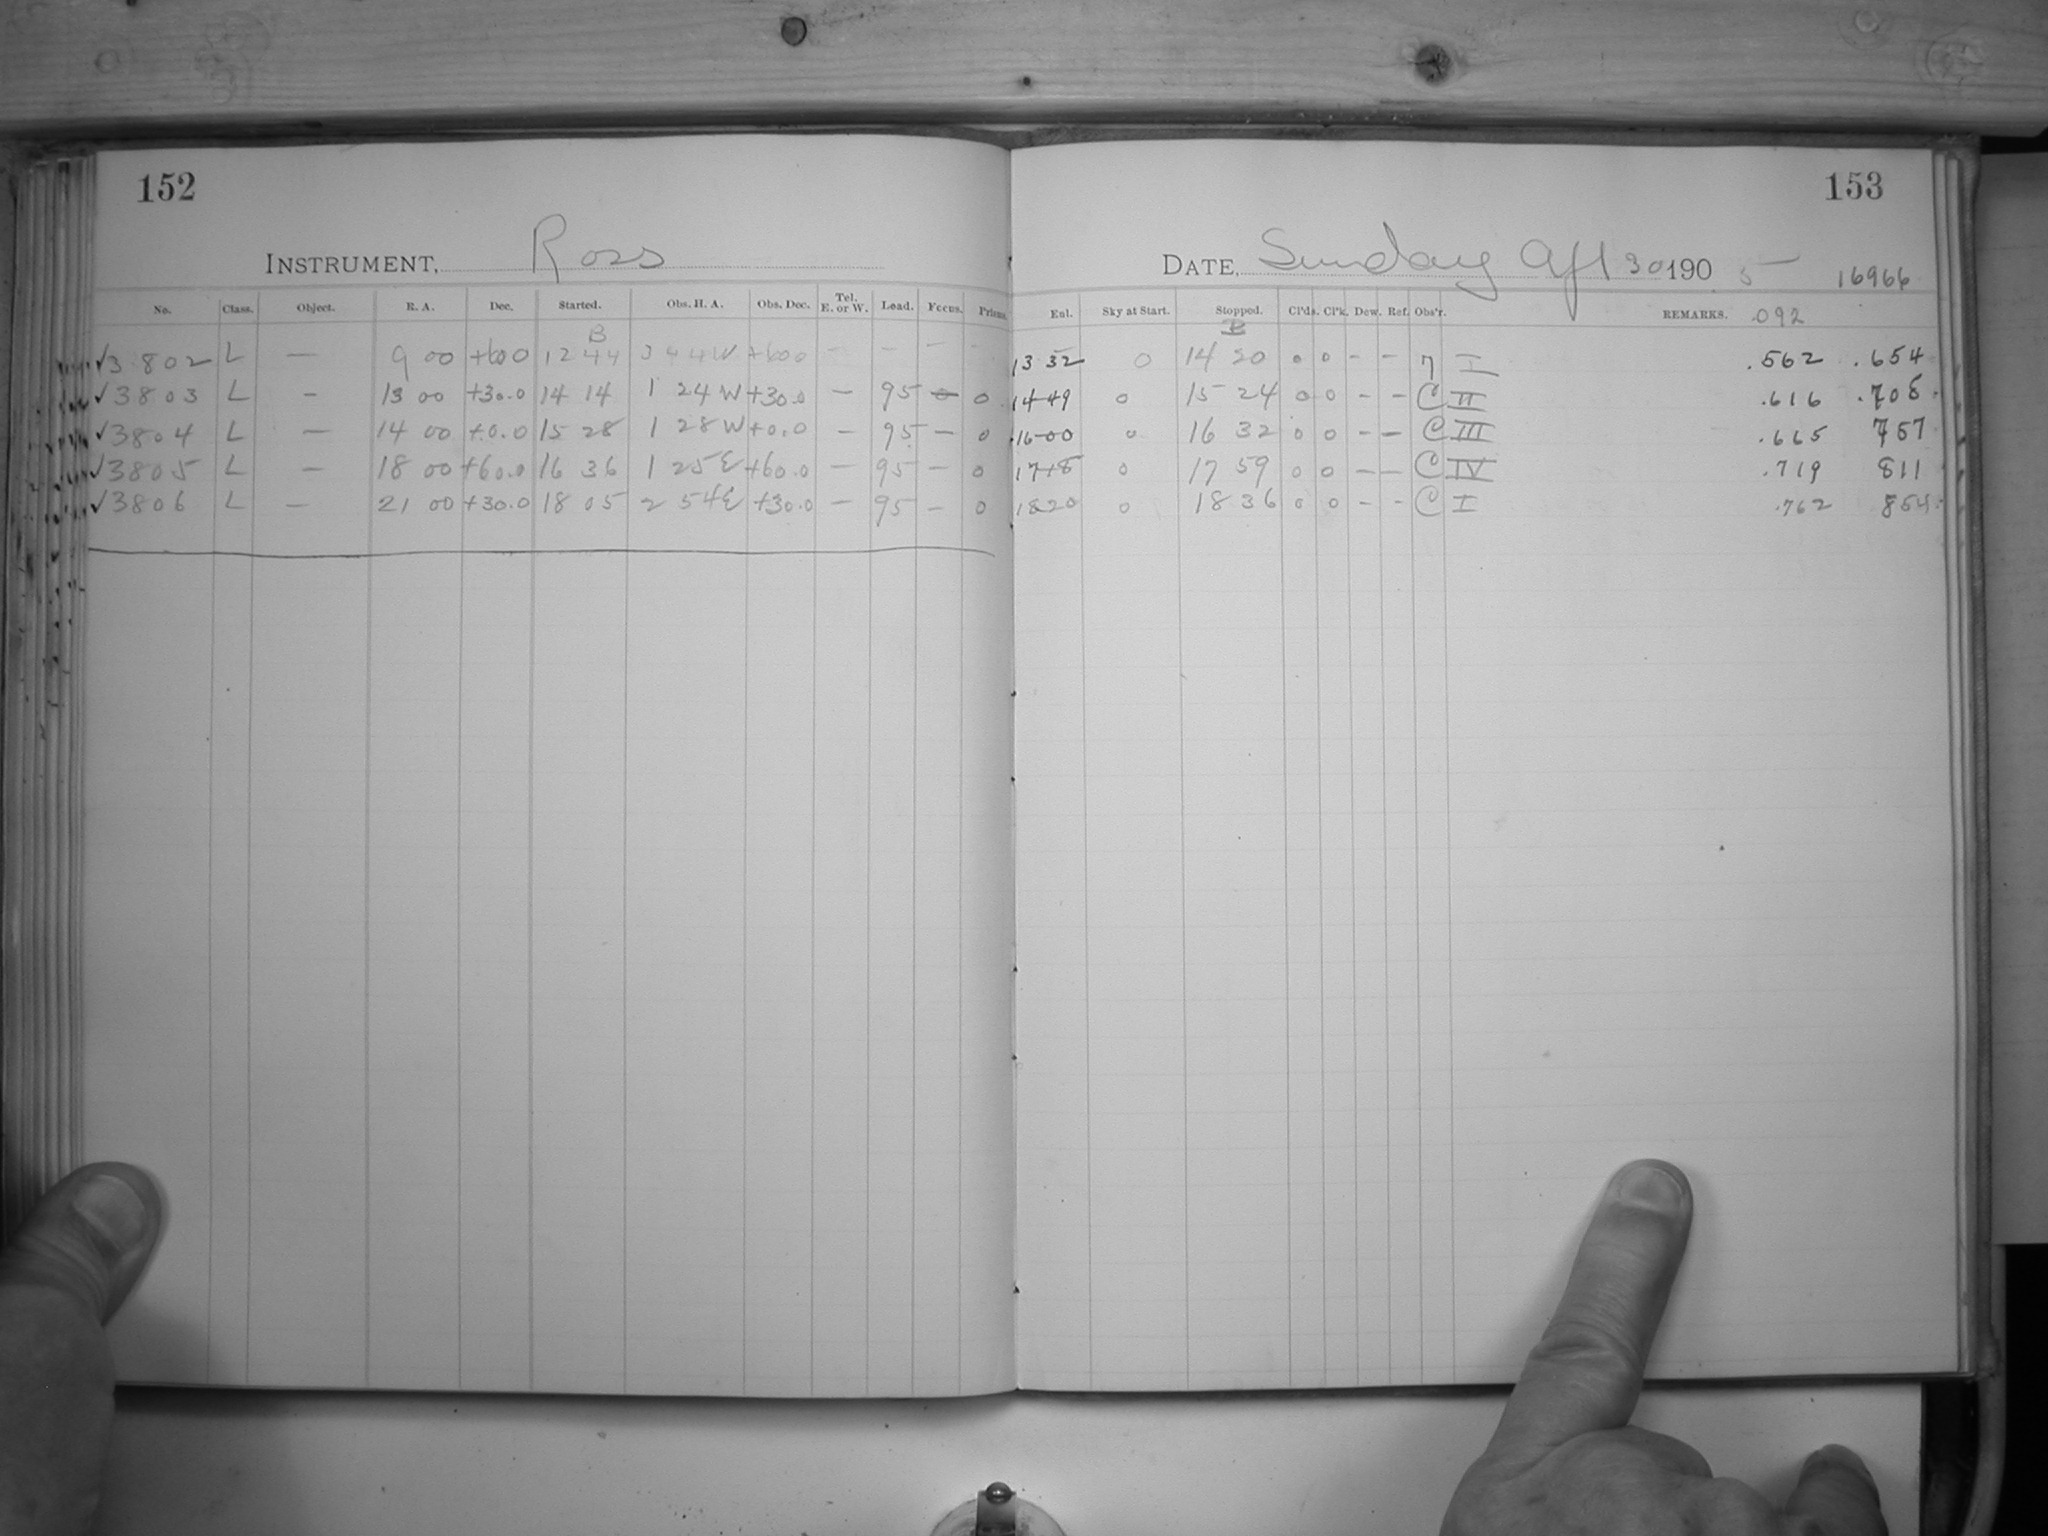 152
INSTRUMENT, Ross
No. Class. Object. R. A. Dec. Started. Obs. H. A. Obs. Dec. Tel. E. or W. Load. Focus. Prisms.
B
✓3802 L — 9 00 +60 0 12 44 3 44 W +60 0 — — — —
✓3803 L — 13 00 +30.0 14 14 1 24 W +30.0 — 95 — 0
✓3804 L — 14 00 +0.0 15 28 1 28 W +0.0 — 95 — 0
✓3805 L — 18 00 +60.0 16 36 1 25 E +60.0 — 95 — 0
✓3806 L — 21 00 +30.0 18 05 2 54 E +30.0 — 95 — 0
153
DATE, Sunday 30 190 5 16966
Enl. Sky at Start. Stopped. Cl'ds. Cl'k. Dew. Ref. Obs'r. REMARKS. .092
B
13 32 0 14 20 0 0 – – I .562 .654
14 49 0 15 24 0 0 – – C II .616 .708
16 00 0 16 32 0 0 – – C III .665 757
17 18 0 17 59 0 0 – – C IV .719 811
18 20 0 18 36 0 0 – – C I .762 854